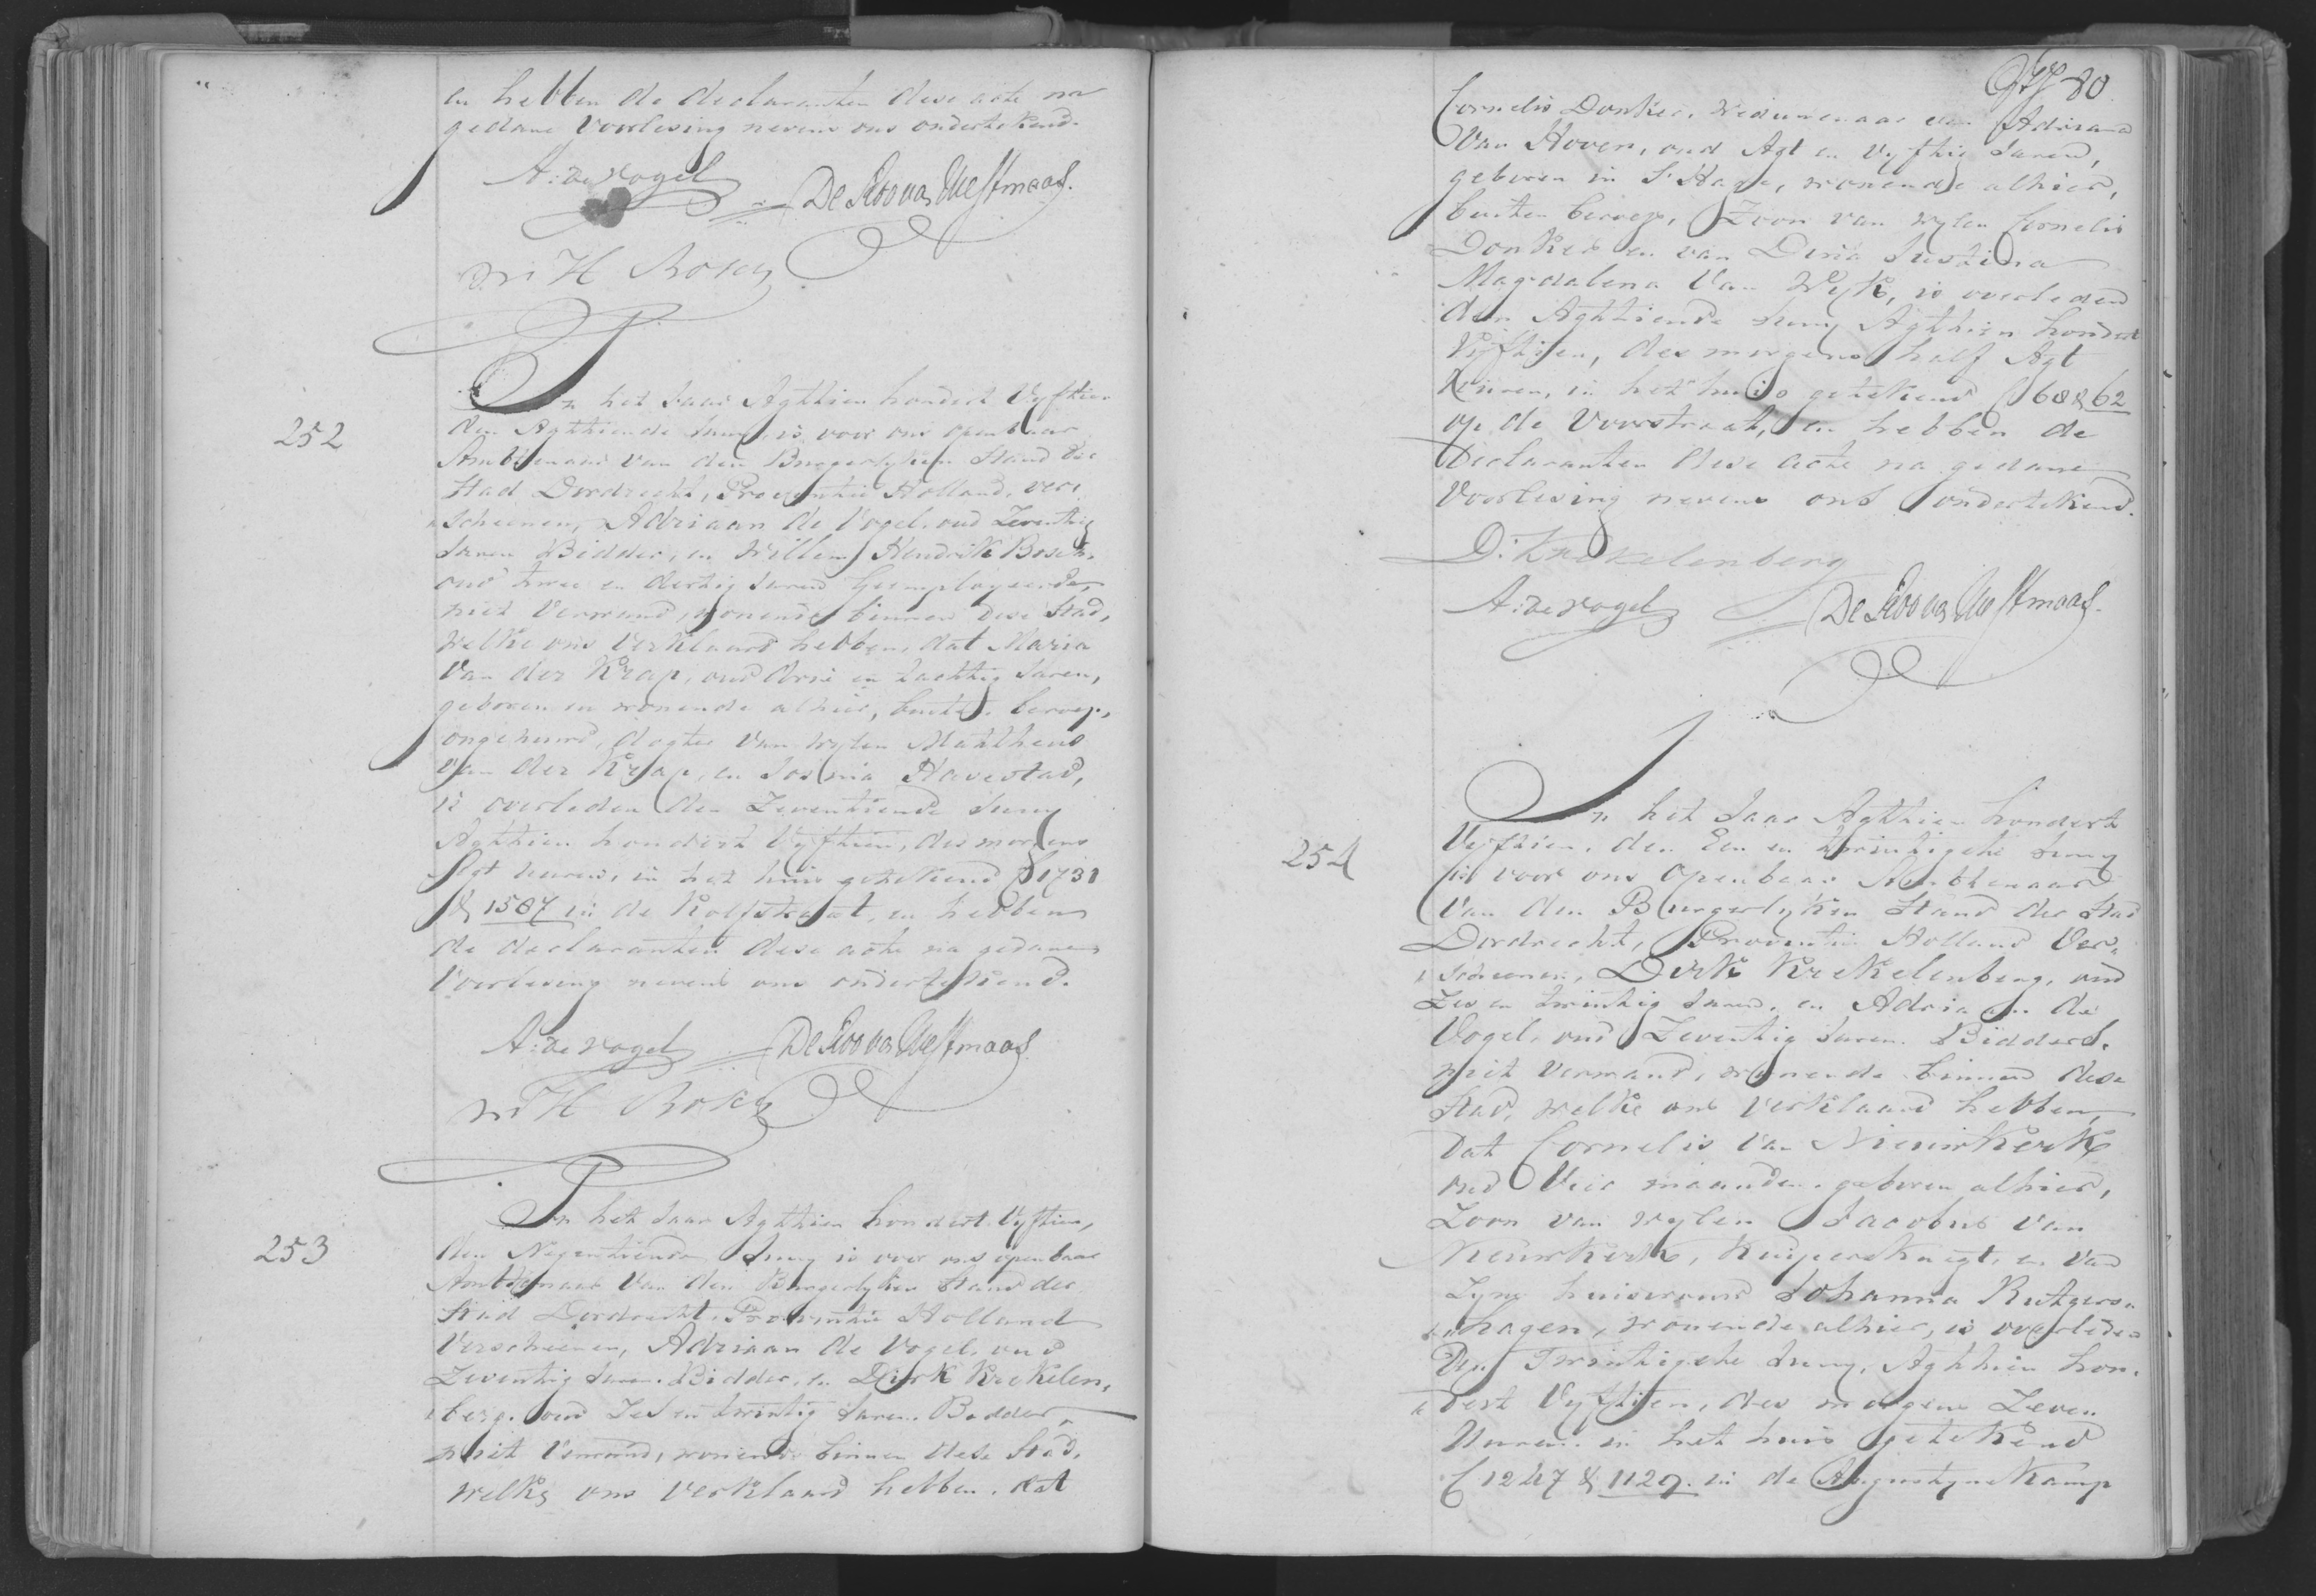 en hebben de declaranten dese acte na
gedane Voorlesing nevens ons ondertekend.
A: de Vogel De Roo van Westmaas.
W H Bosch
252
In het Jaar Agthien hondert Vyftien
den Agthiende Juny is voor ons openbaar
Ambtenaar van den Burgerlyken Stand der
Stad Dordrecht, Provintie Holland, ver„
„scheenen, Adriaan de Vogel, oud Zeventig
Jaren Bidder, en Willem Hendrik Bosch,
oud twee en dertig Jaren Geemployeerde,
niet Verwand, wonende binnen dese Stad,
welke ons verklaard hebben, dat Maria
Van der Krap, oud drie en tachtig Jaren,
geboren en wonende alhier, buiten beroep,
ongehuwd, dogter van wylen Mattheus
Van der Krap, en Josina Havestad,
is overleden den Zeventiende Juny
Agthien hondert Vyftien, des morgens
Agt uuren, in het huis getekend C 1731
& 1587 in de Kolfstraat, en hebben
de declaranten dese acte na gedane
Voorlesing nevens ons ondertekend.
A: de Vogel De Roo van Westmaas
W H Bosch
253
In het Jaar Agthien hondert Vyftien,
den Negentiende Juny is voor ons openbaar
Ambtenaar Van den Burgerlyken Stand der
Stad Dordrecht, Provintie Holland
Verscheenen, Adriaan de Vogel, oud
Zeventig Jaren. Bidder, en Dirk Krekelen„
„berg, oud Zes en twintig Jaren Bidder,
niet Verwand, wonende binnen dese Stad,
welke ons verklaard hebben, dat
80
Cornelis Donker, Weduwenaar van Adriana
Van Hoven, oud Agt en Vyftig Jaren,
geboren in S Hage, wonende alhier,
buiten beroep, Zoon van wylen Cornelis
Donker en van Dina Justina
Magdalena Van Wyk, is overleden
den Agthiende Juny Agthien hondert
Vyftien, des morgens half Agt
Uuren, in het huis getekend C 68 & 62
op de Voorstraat, en hebben de
Declaranten dese acte na gedane
Voorlesing nevens ons ondertekend.
D: Krekelenberg
A: de Vogel De Roo van Westmaas.
254
In het Jaar Agthien hondert
Vyftien, den Een en twintigste Juny
is voor ons Openbaar Ambtenaar
Van den Burgerlyken Stand der Stad
Dordrecht, Provintie Holland Ver„
„scheenen, Dirk Krekelenberg, oud
Zes en twintig Jaren, en Adriaan de
Vogel, oud Zeventig Jaren. Bidders,
niet Verwand, wonende binnen dese
Stad, welke ons verklaard hebben,
Dat Cornelis Van Nieuwkerk
oud Vier maanden, geboren alhier,
Zoon van wylen Jacobus Van
Nieuwkerk, Kuipersknegt, en Van
Zyne huisvrouw Johanna Rutgers„
„hagen, wonende alhier, is overleden
Den Twintigste Juny, Agthien hon„
„dert Vyftien, des morgens Zeven
Uuren in het huis getekend
C 1247 & 1129. in de Augustyne Kamp